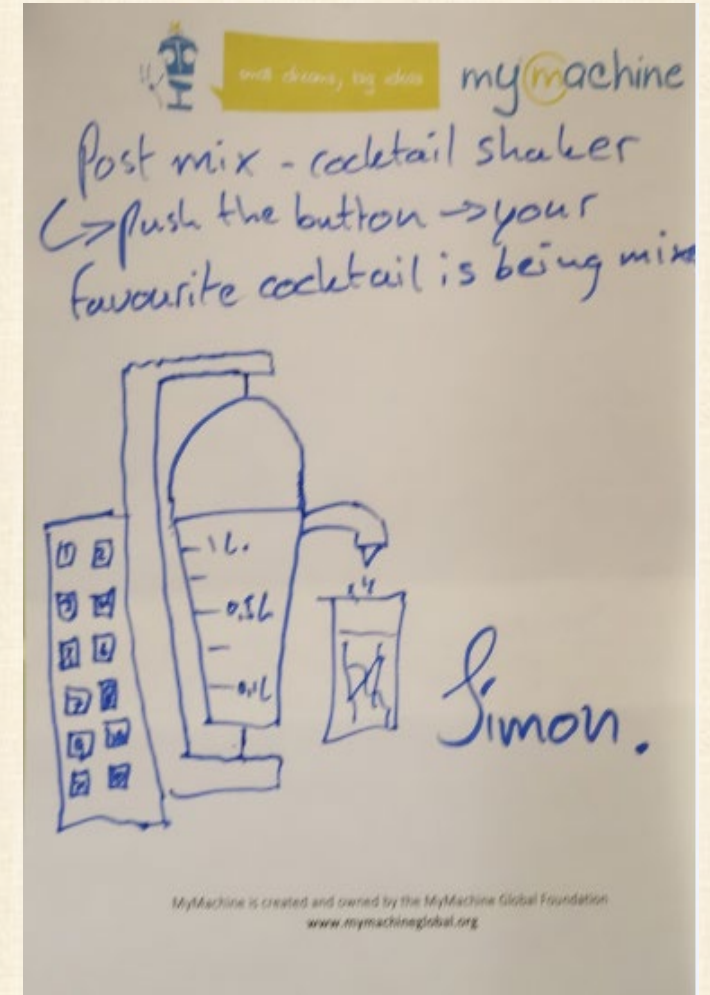 small dreams, big ideas
mymachine
Post mix - cocktail shaker
↳ push the button → your
favourite cocktail is being mixe
1 2
3 4
5 6
7 8
9 10
1 L.
0,5L
0,1L
Simon.
MyMachine is created and owned by the MyMachine Global Foundation
www.mymachineglobal.org